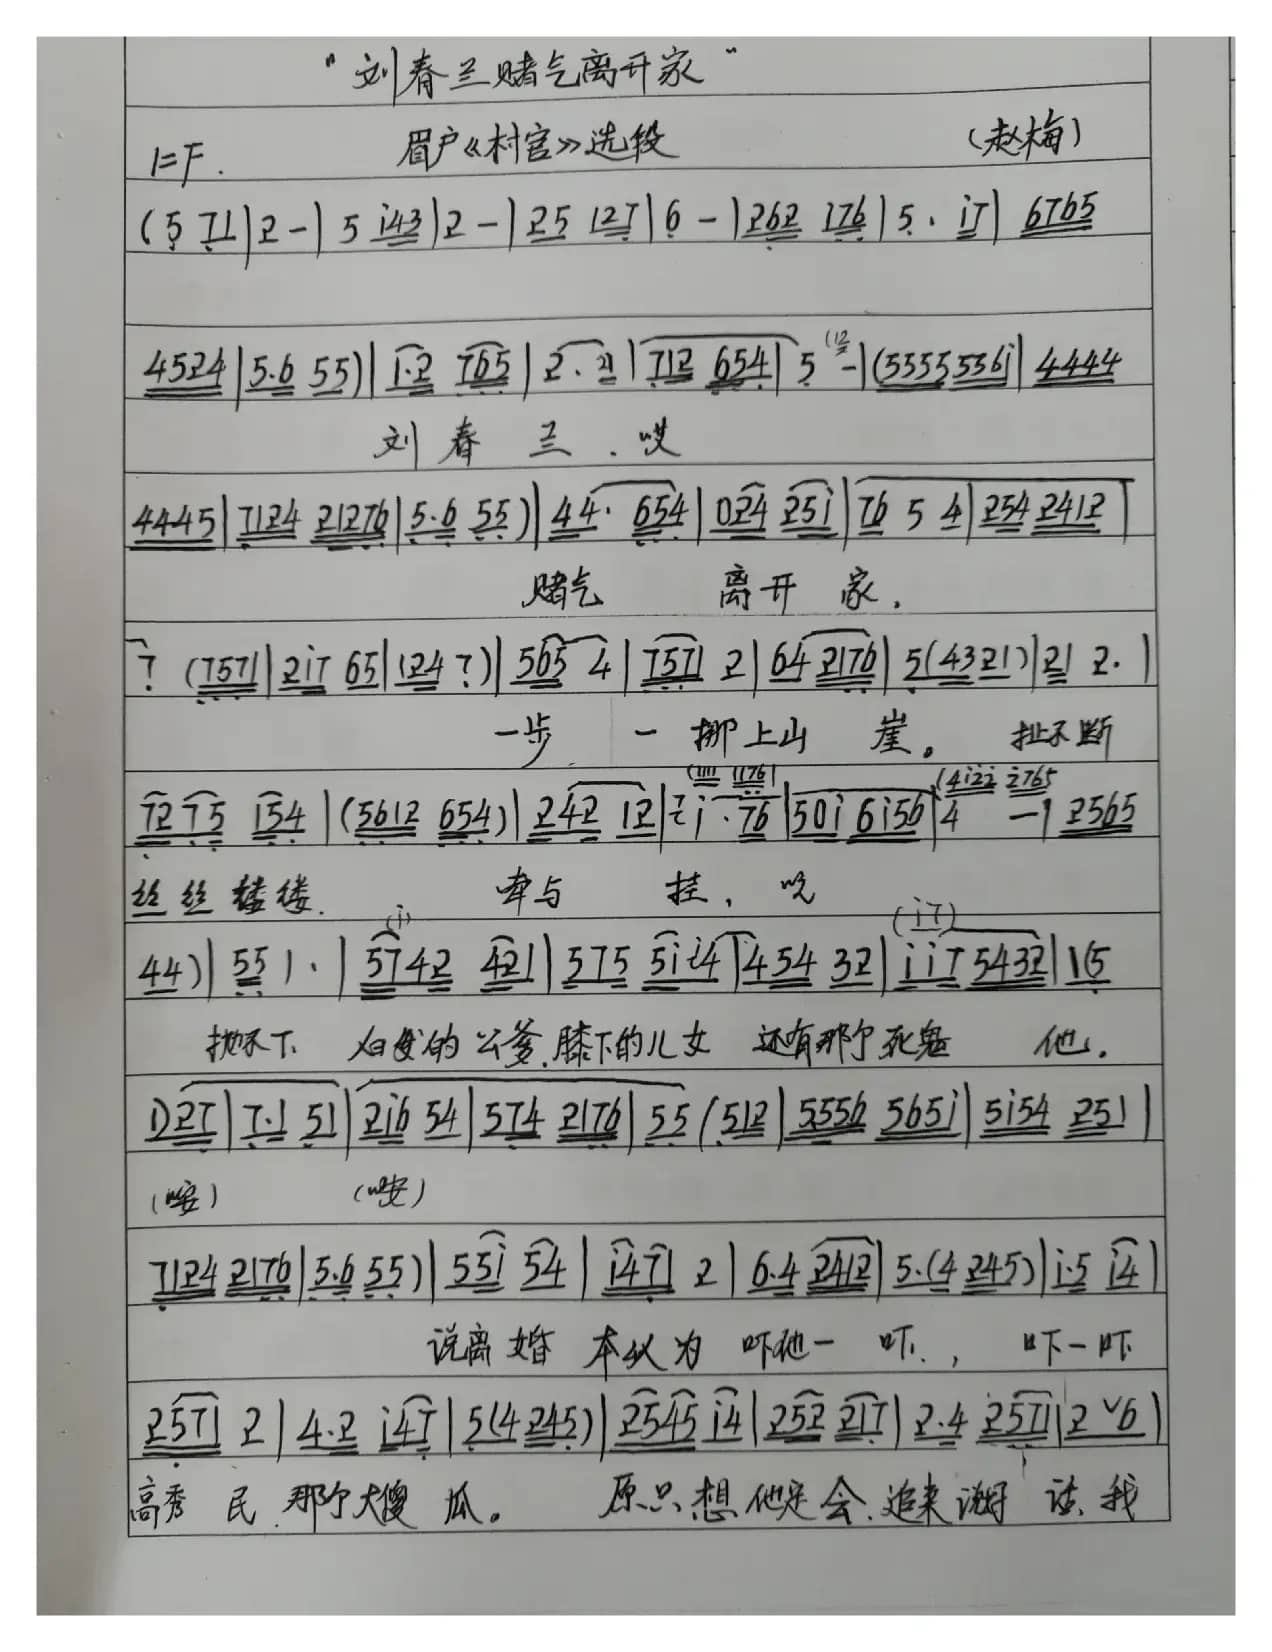 "刘春兰赌气离开家"
1=F. 眉户《村官》选段 (赵梅)
(5 71|2-|5 i43|2-|25 127|6-|262 176|5. i7|6765
4524|5.6 55)|1.2 765|2. 21|712 654|5 -|(5555 556i|4444
刘春兰.哎
4445|7124 21276|5.6 55)|44. 654|024 251|76 5 4|254 2412|
赌气 离开 家,
7 (7571|2i7 65|124 7)|565 4|7571 2|64 2176|5(4321)|21 2.|
一步 一 挪上山 崖。 扯不断
(1111 1176| (4i22 2765
7275 154|(5612 654)|242 12|7i.76|50i 6i56|4 -|2565
丝丝缕缕. 牵与 挂,
(i) (i7)
44)|55 1.|5742 421|575 5i i4|454 32|ii7 5432|1(5
抛不下 的公爹.膝下的儿女 还有那个死鬼 他.
1)27|7.1 51|2i6 54|574 2176|55(512|5556 565i|5i54 251|
(唉) (唉)
7124 2176|5.6 55)|55i 54|i471 2|6.4 2412|5.(4 245)|i.5 i4|
说离婚 本以为 吓他一 吓., 吓一吓
2571 2|4.2 i47|5(4 245)|2545 i4|252 217|2.4 2571|2 ˇ6|
高秀 民 那个大傻 瓜。 原只想他定会.追来说好 话.我